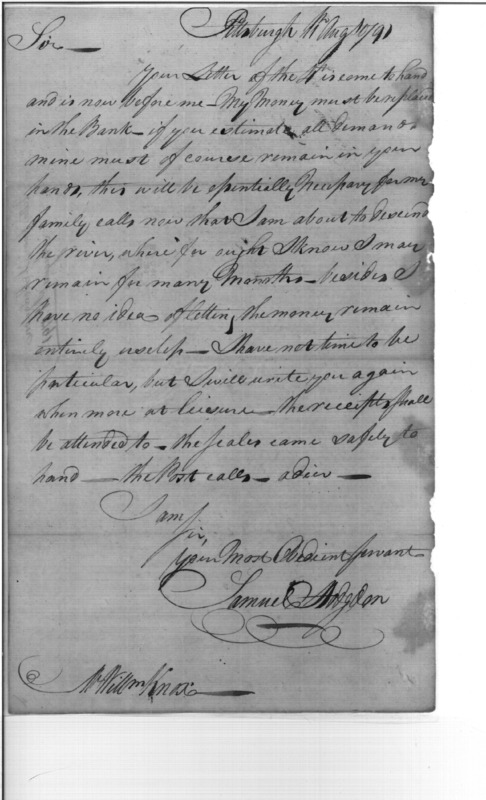 Pittsburgh Augt 1791
Sir —
Your Letter of the 4th is come to hand
and is now before me — My Money must be replaced
in the Bank — if you estimate all demands
mine must of course remain in your
hands, this will be essentially Necessary for my
family calls now that I am about to descend
the river, where for ought I know I may
remain for many Monthts — besides I
have no idea of letting the money remain
entirely useless — I have not time to be
particular, but I will write you again
when more at leisure — the receipts shall
be attended to — the scales came safely to
hand — the Post calls — adieu —
I am
Sir,
Your Most Obedient Servant
Samuel Hodgdon
Mr Willm Knox —